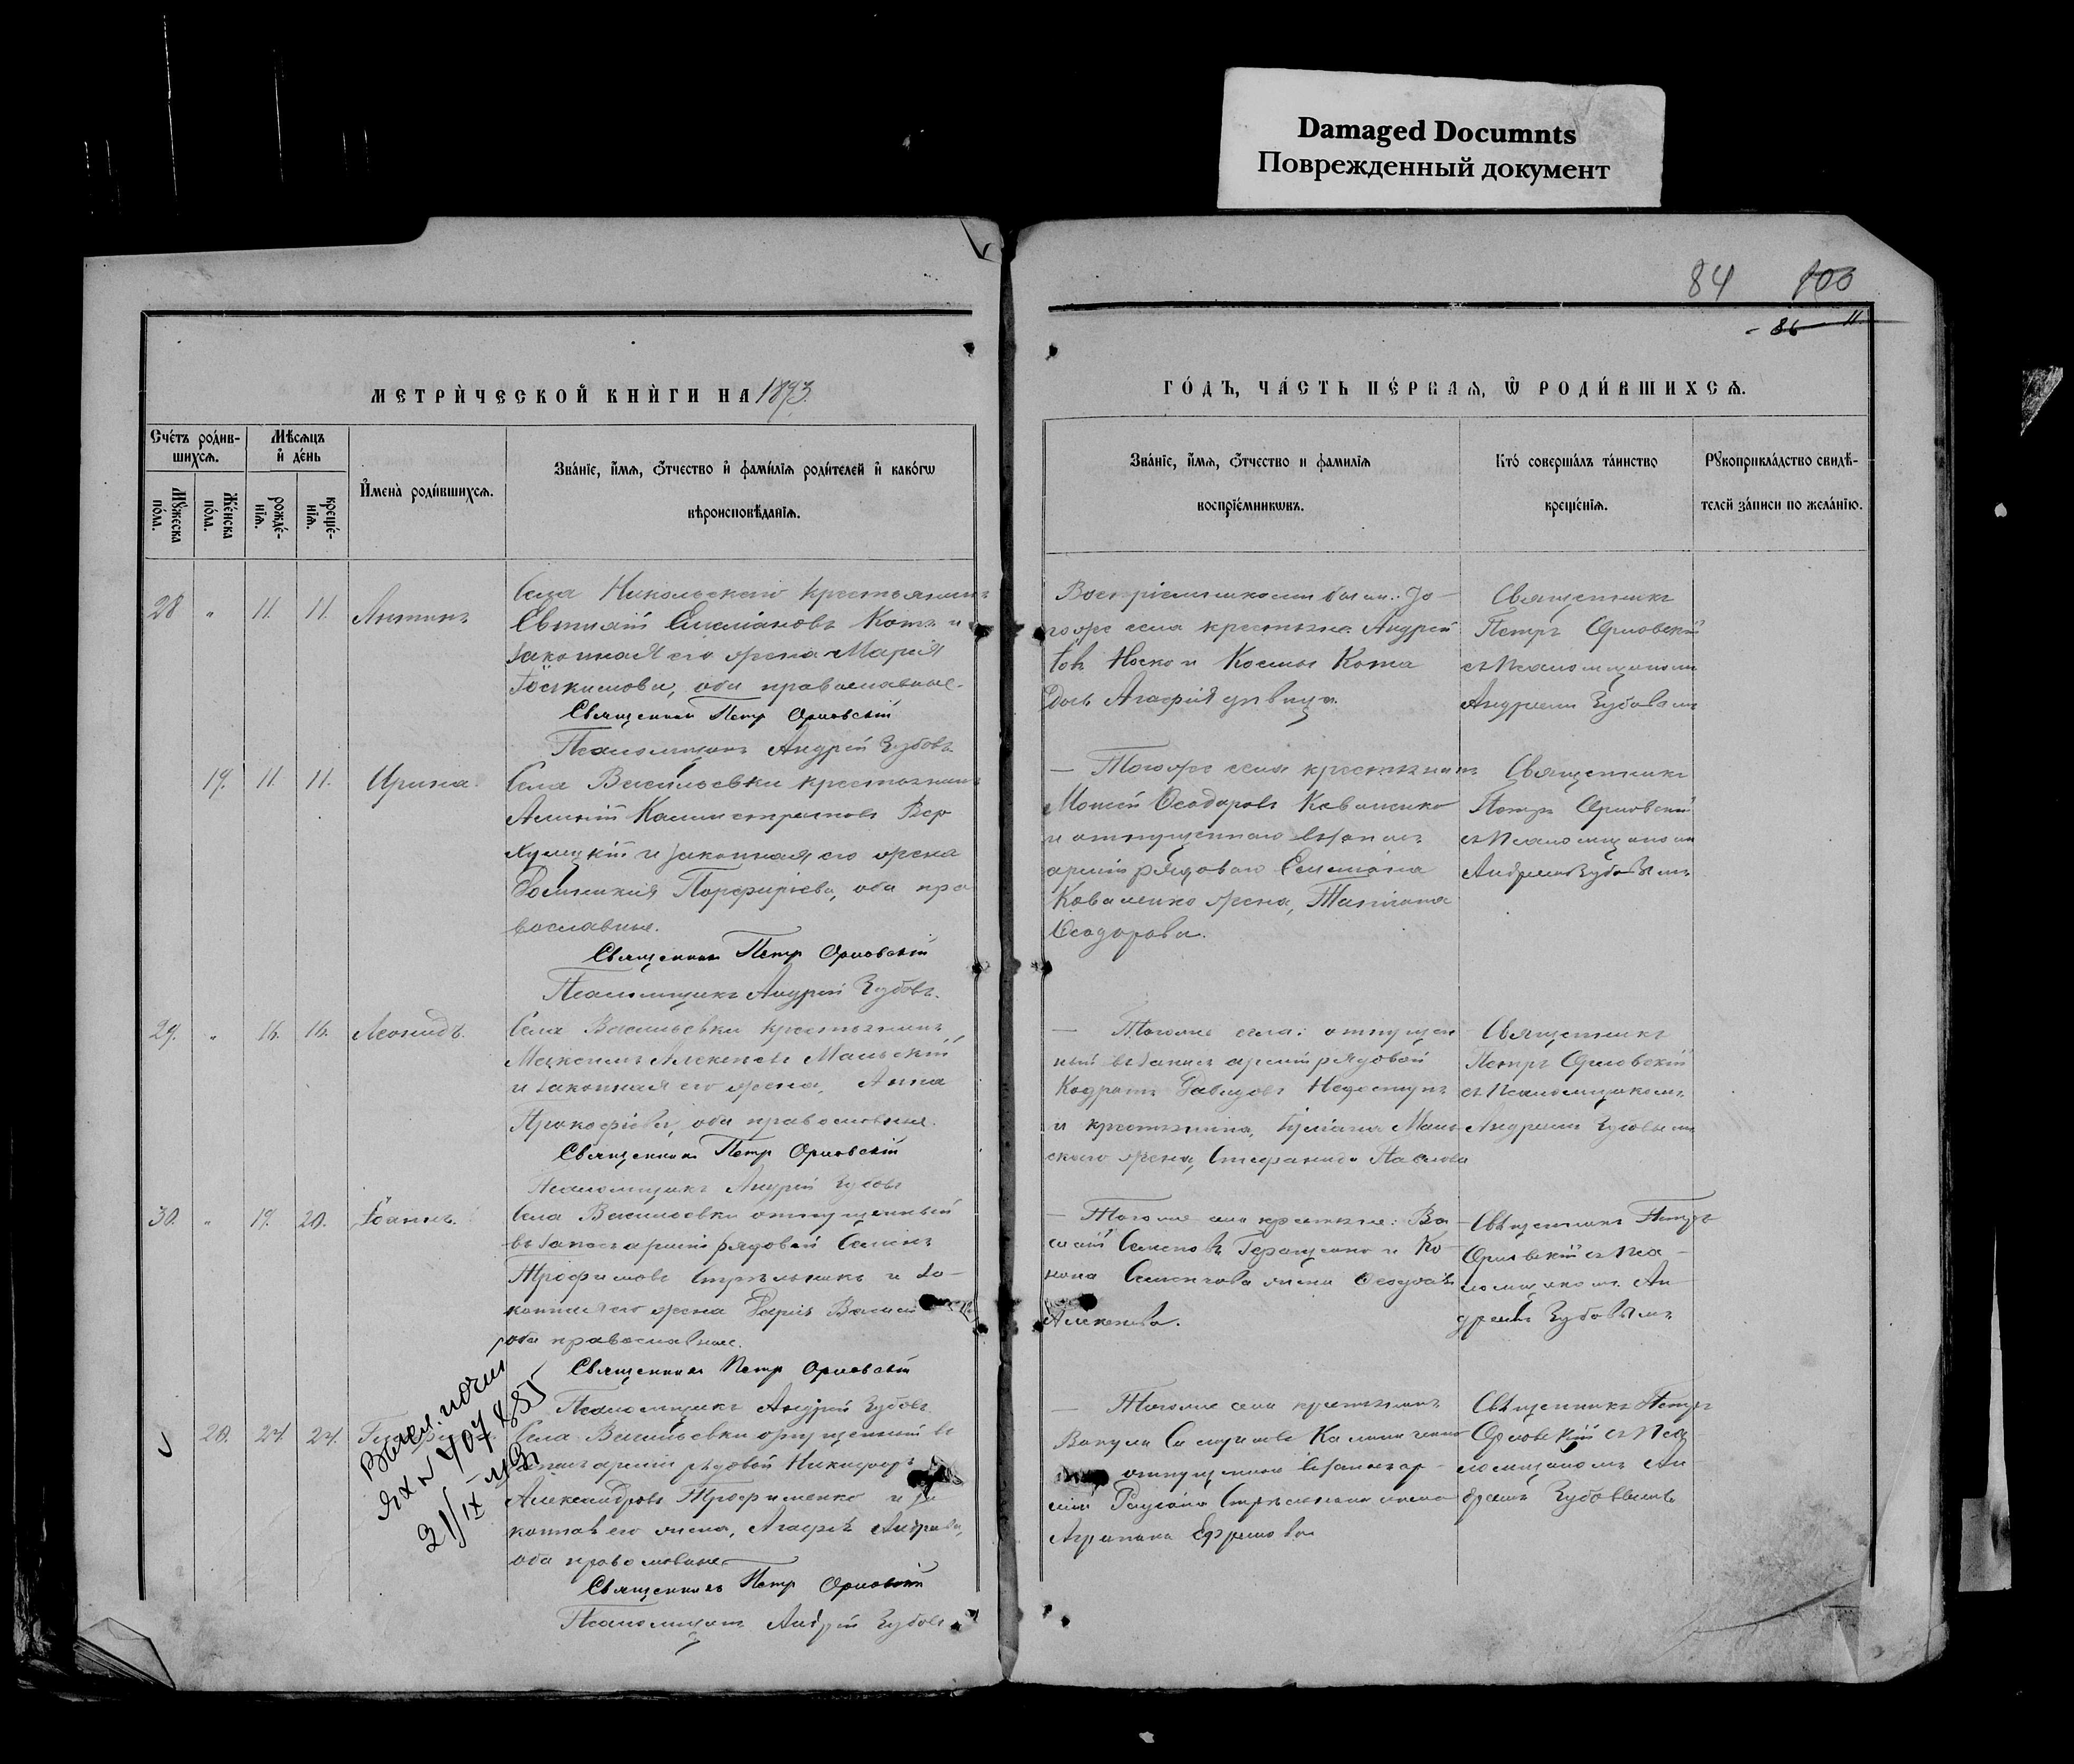 Damaged Documnts
Поврежденный документ
84 100
- 86 - 11.
МЕТРИ́ЧЕСКОЙ КНИ́ГИ НА 1893.
ГО́ДЪ, ЧА́СТЬ ПЕ́РВАѦ, Ѿ РОДИ́ВШИХСѦ.
Сче́тъ роди́в-
шихсѧ.
Мѣ́сѧцъ
и҆ де́нь
Мꙋ́жеска
по́ла.
Же́нска
по́ла.
рожде́-
нїѧ.
креще́-
нїѧ.
И҆мена̀ роди́вшихсѧ.
Зва́нїе, и҆́мѧ, ѻ҆́тчество и҆ фами́лїѧ роди́телей и҆ како́гѡ
вѣроисповѣ́данїѧ.
Зва́нїе, и҆́мѧ, ѻ҆́тчество и фами́лїѧ
воспрїе́мникѡвъ.
Кто̀ соверша́лъ та́инство
креще́нїѧ.
Рꙋкоприкла́дство свидѣ́-
телей за́писи по жела́нїю.
28 " 11. 11. Антинъ
Села Никольскаго крестьянинъ
Евтихій Емеліановъ Котъ и
законная его жена Марія
Іоакимова, оба православные.
Священникъ Петр Орловскій
Псаломщикъ Андрей Зубовъ
Воспріемниками были: То-
гоже села крестьяне Андрей
Носко и Космы Кота
дочь Агафія дѣвица.
Священникъ
Петръ Орловскій
съ псаломщикомъ
Андреемъ Зубовымъ
19. 11. 11. Ирина.
Села Васильевки крестьянинъ
Алексій Калистратовъ Вер
и законная его жена
Порфиріева, оба пра
вославные.
Священникъ Петр Орловскій
Псаломщикъ Андрей Зубовъ.
— Тогоже села крестьянинъ
Моисей Ѳеодоровъ Коваленко
и отпущеннаго въ запасъ
арміи рядового Емеліана
Коваленко жена, Татіана
Ѳеодорова.
Священникъ
Петръ Орловскій
съ псаломщикомъ
Андреемъ Зубовымъ
29. " 16. 16. Леонидъ.
Села Васильевки крестьянинъ
Максимъ Алексѣевъ Мальскій
и законная его жена, Анна
Прокофіева, оба православные.
Священникъ Петр Орловскій
Псаломщикъ Андрей Зубовъ
— Тогоже села: отпущен
ный въ запасъ арміи рядовой
Кодратъ Давидовъ Недоступъ
и крестьянина, Іуліана Маль
скаго жена, Стефанида Павлова
Священникъ
Петръ Орловскій
съ псаломщикомъ
Андреемъ Зубовымъ
30. " 19. 20. Іоаннъ.
Села Васильевки отпущенный
въ запасъ арміи рядовой Семенъ
Трофимовъ Стрѣльникъ и за-
конная его жена Дарія
оба православные.
Священникъ Петр Орловскій
Псаломщикъ Андрей Зубовъ
— Тогоже села крестьяне: Ва
силій Семеновъ Геращенко и Ко
нона жена
Алексѣева.
Священникъ Петръ
Орловскій съ пса-
ломщикомъ Ан
дреемъ Зубовымъ
20. 24. 24.
Села Васильевки отпущенный въ
запасъ арміи рядовой Никифоръ
Александровъ Трофименко и за
конная его жена, Агафія Андреева,
оба православные.
Священникъ Петр Орловскій
Псаломщикъ Андрей Зубовъ
— Тогоже села крестьянинъ
Вакула Калиниченко
отпущеннаго въ запасъ ар-
міи жена
Агрипина Ефремова
Священникъ Петръ
Орловскій съ пса
ломщикомъ Ан
дреемъ Зубовымъ